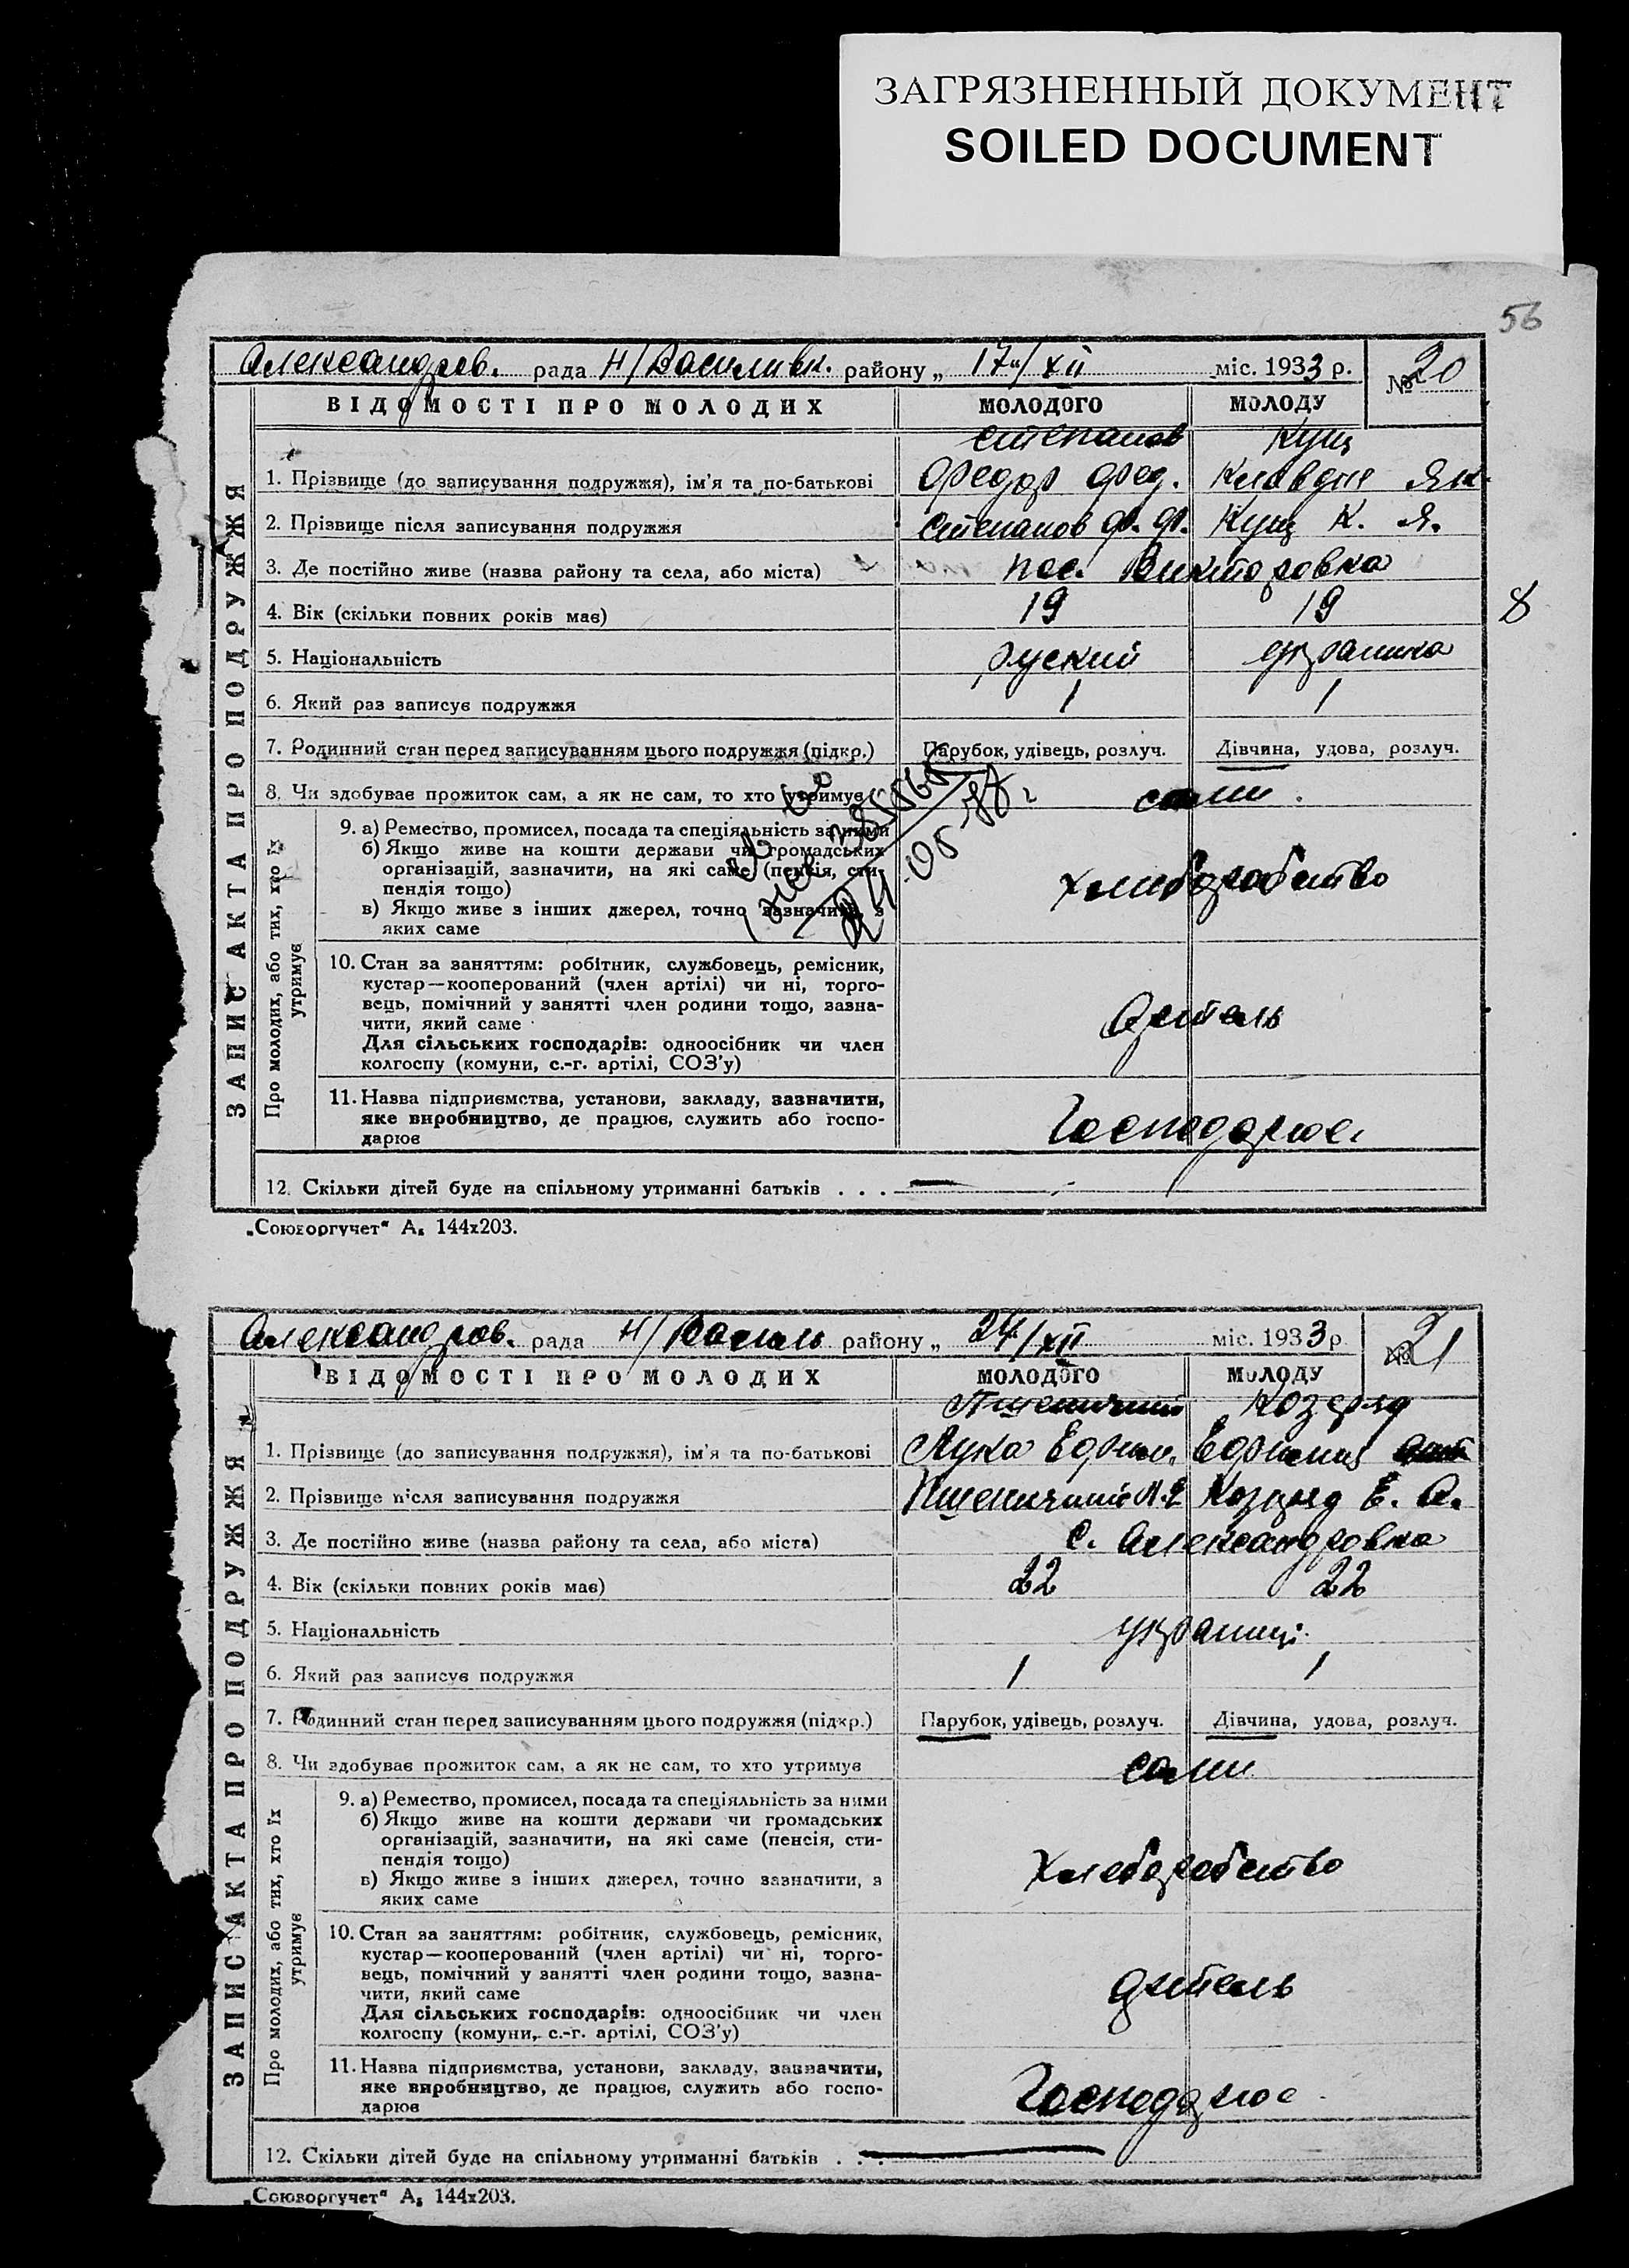 ЗАГРЯЗНЕННЫЙ ДОКУМЕНТ
SOILED DOCUMENT
56
Александров. рада Н/Василивк. району „ 17"/XII міс. 1933 р. № 20
ВІДОМОСТІ ПРО МОЛОДИХ МОЛОДОГО МОЛОДУ
ЗАПИС АКТА ПРО ПОДРУЖЖЯ
Степанов Кущ
1. Прізвище (до записування подружжя), ім'я та по-батькові Федор Фед. Клавдия Як.
2. Прізвище після записування подружжя Степанов Ф. Ф. Кущ К. Я.
3. Де постійно живе (назва району та села, або міста) пос. Викторовка
4. Вік (скільки повних років має) 19 19
8
5. Національність руский украинка
6. Який раз записує подружжя 1 1
7. Родинний стан перед записуванням цього подружжя (підкр.) Парубок, удівець, розлуч. Дівчина, удова, розлуч.
8. Чи здобуває прожиток сам, а як не сам, то хто утримує сами.
Про молодих, або тих, хто їх
утримує
9. а) Ремество, промисел, посада та спеціяльність за ними
б) Якщо живе на кошти держави чи громадських
організацій, зазначити, на які саме (пенсія, сти-
пендія тощо)
в) Якщо живе з інших джерел, точно зазначити, з
яких саме
хлиборобство
10. Стан за заняттям: робітник, службовець, ремісник,
кустар—кооперований (член артілі) чи ні, торго-
вець, помічний у занятті член родини тощо, зазна-
чити, який саме
Для сільських господарів: одноосібник чи член
колгоспу (комуни, с.-г. артілі, СОЗ'у)
11. Назва підприємства, установи, закладу, зазначити,
яке виробництво, де працює, служить або госпо-
дарює
Господарює.
12. Скільки дітей буде на спільному утриманні батьків . . . —
„Союзоргучет" А₅ 144х203.
Александров. рада Н/Василь району „ 24/XII міс. 1933 р № 21
ВІДОМОСТІ ПРО МОЛОДИХ МОЛОДОГО МОЛОДУ
ЗАПИС АКТА ПРО ПОДРУЖЖЯ
Пшеничний Козуряд
1. Прізвище (до записування подружжя), ім'я та по-батькові Лука Ефрим. Ефимия
2. Прізвище після записування подружжя Пшеничний Л. Е Козуряд Е. А.
3. Де постійно живе (назва району та села, або міста) с. Александровка
4. Вік (скільки повних років має) 22 22
5. Національність украинці.
6. Який раз записує подружжя 1 1
7. Родинний стан перед записуванням цього подружжя (підкр.) Парубок, удівець, розлуч. Дівчина, удова, розлуч.
8. Чи здобуває прожиток сам, а як не сам, то хто утримує сами
Про молодих, або тих, хто їх
утримує
9. а) Ремество, промисел, посада та спеціяльність за ними
б) Якщо живе на кошти держави чи громадських
організацій, зазначити, на які саме (пенсія, сти-
пендія тощо)
в) Якщо живе з інших джерел, точно зазначити, з
яких саме
Хлеборобство
10. Стан за заняттям: робітник, службовець, ремісник,
кустар—кооперований (член артілі) чи ні, торго-
вець, помічний у занятті член родини тощо, зазна-
чити, який саме
Для сільських господарів: одноосібник чи член
колгоспу (комуни, с.-г. артілі, СОЗ'у)
11. Назва підприємства, установи, закладу, зазначити,
яке виробництво, де працює, служить або госпо-
дарює
Господарює
12. Скільки дітей буде на спільному утриманні батьків . . . —
„Союзоргучет" А₅ 144х203.